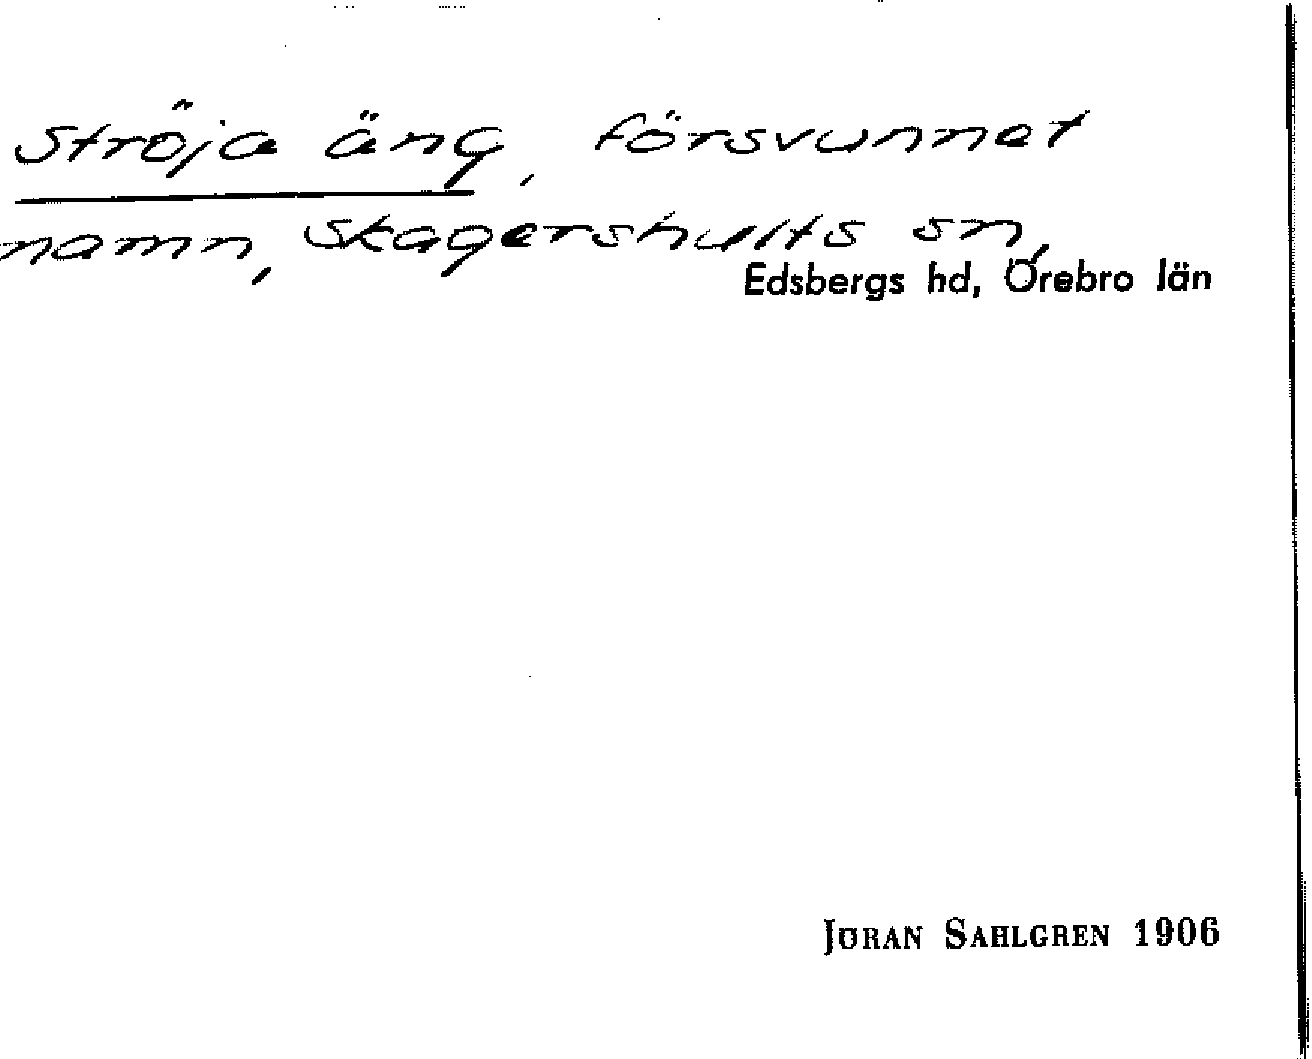 Ströja äng, försvunnet
namn, Skagershults sn,
Edsbergs hd, Örebro län
JÖRAN SAHLGREN 1906